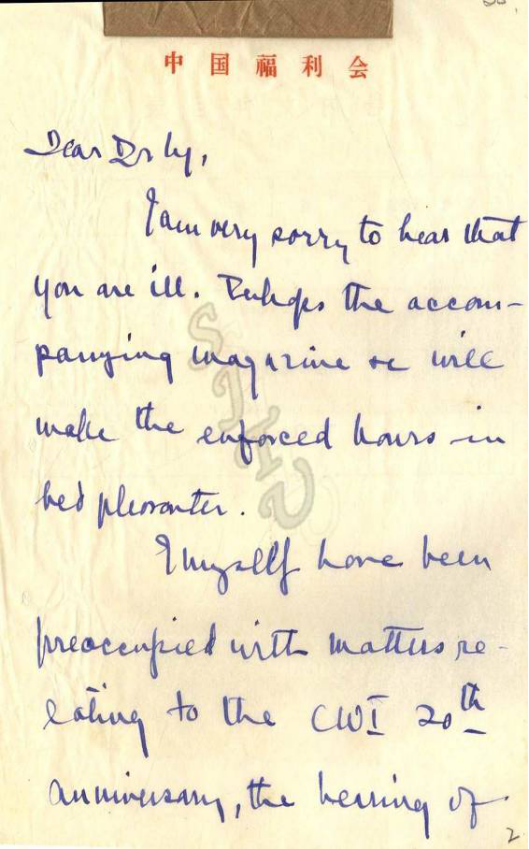 中国福利会
Dear Dr ly,
I am very sorry to hear that
you are ill. Perhaps the accom-
panying magazine will
make the enforced hours in
bed pleasanter.
I myself have been
preoccupied with matters re-
lating to the CWI 20th
anniversary, the hearing of
2